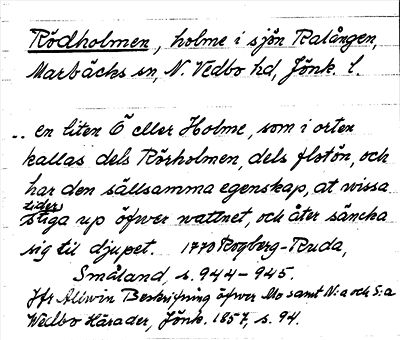 Rödholmen, holme i sjön Ralången,
Marbäcks sn, N. Vedbo hd, Jönk. l.
.. en liten Ö eller Holme, som i orten
kallas dels Rörholmen, dels flotön, och
har den sällsamma egenskap, at wissa
tider
stiga up öfwer wattnet, och åter säncka
sig til djupet. 1770 Rogberg-Ruda,
Småland, s. 944-945.
Jfr Allvin Beskrifning öfwer Mo samt N:a och S:a
Wedbo Härader, Jönk. 1857, s. 94.